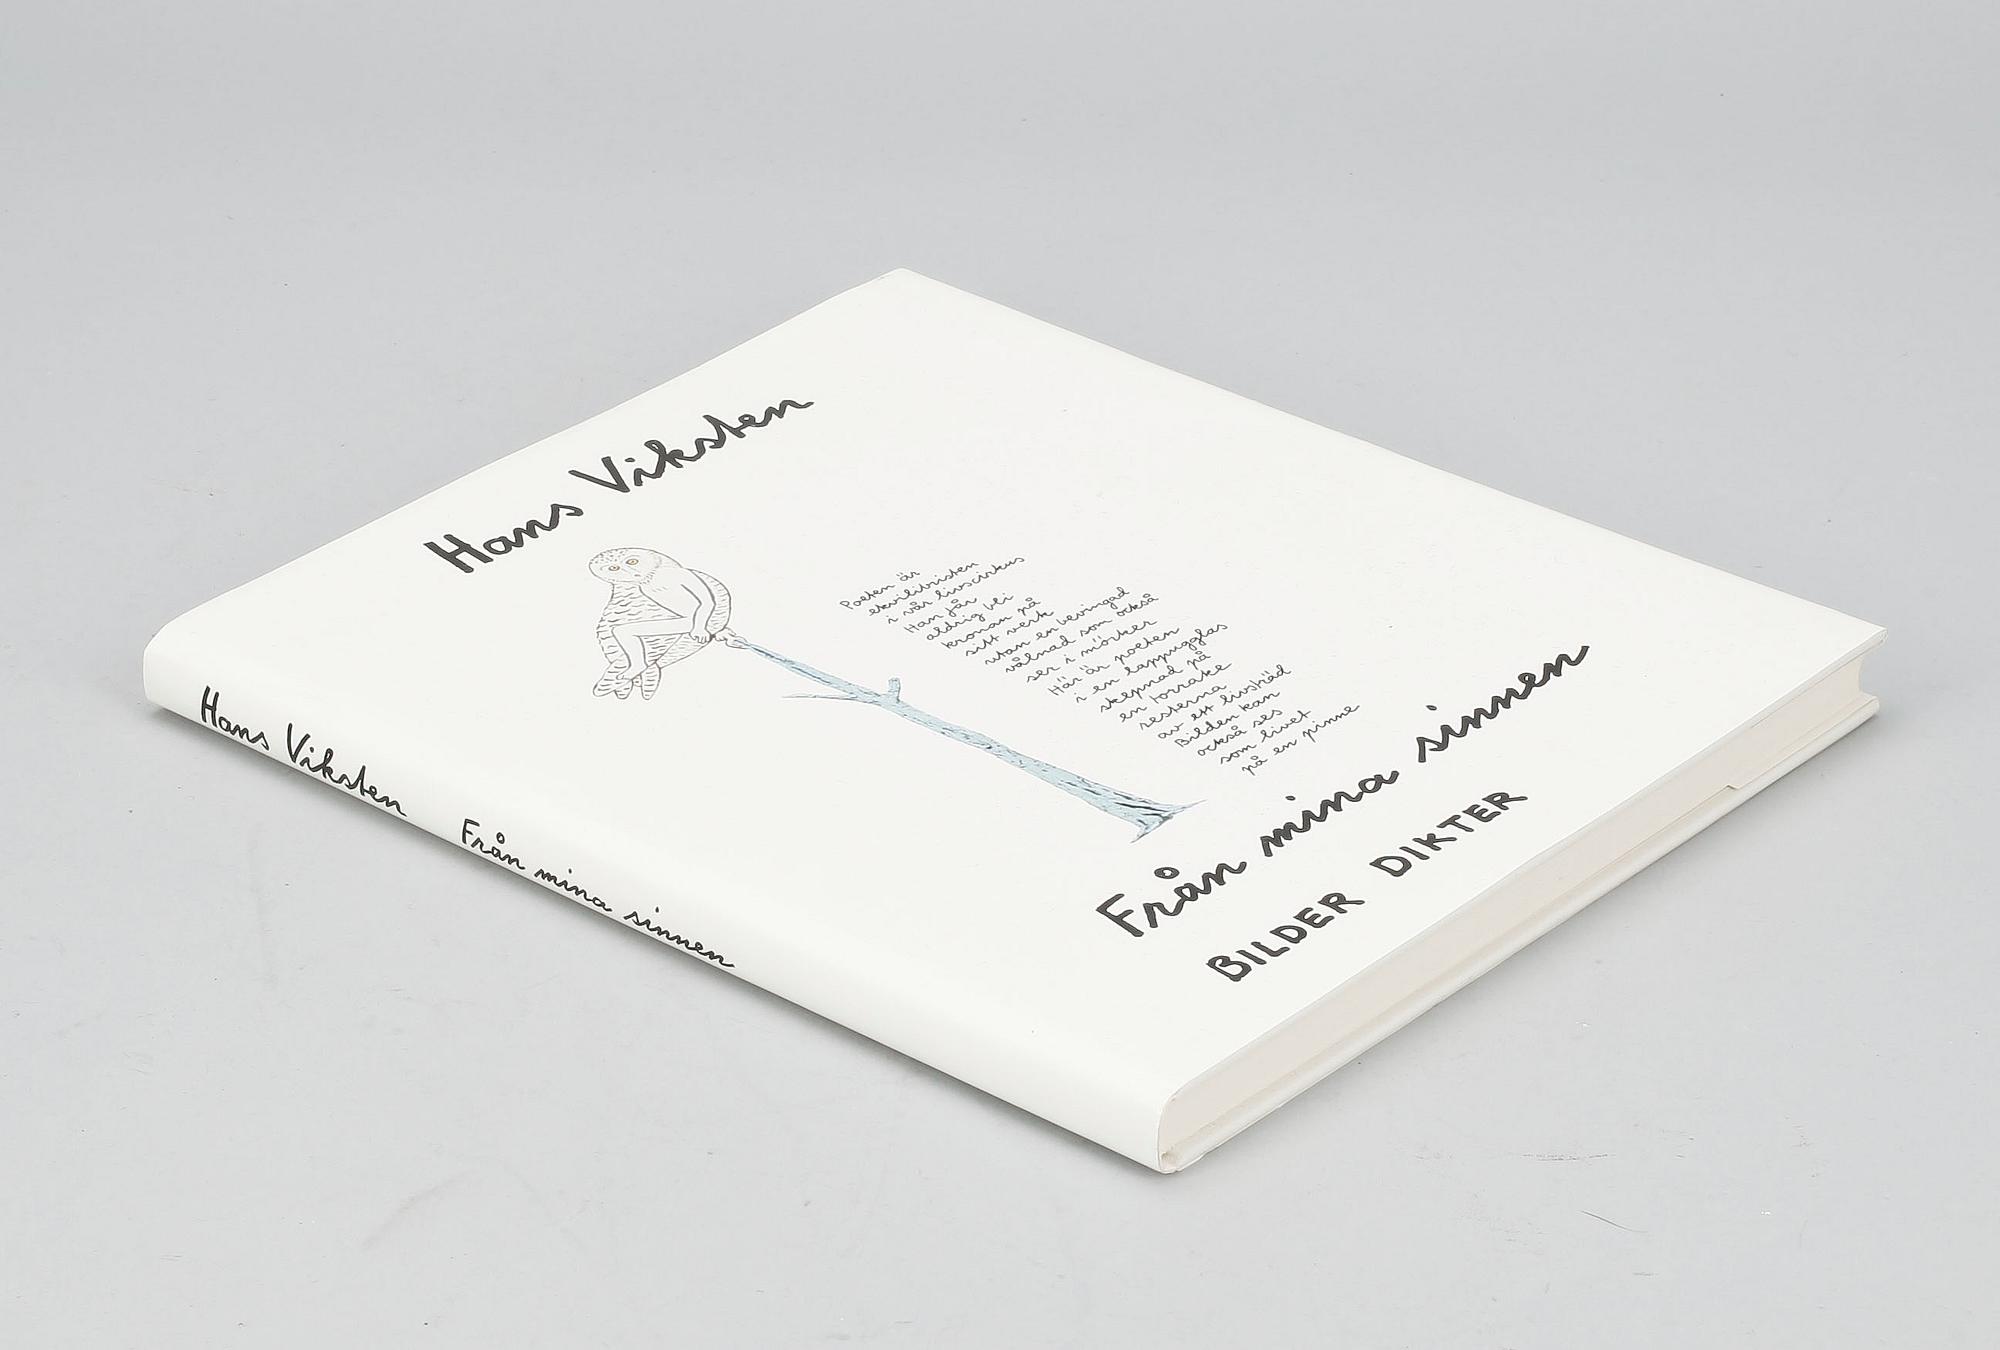 Hans Viksten
Poeten är
ekvilibristen
i vår livscirkus
Han får
aldrig bli
kronan på
sitt verk
utan en bevingad
vålnad som också
ser i mörker
Här är poeten
i en lappugglas
skepnad på
en torrake
resterna
av ett livsträd
Bilden kan
också ses
som livet
på en pinne
Från mina sinnen
BILDER DIKTER
Hans Viksten Från mina sinnen